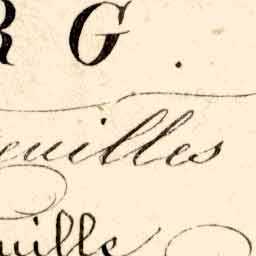 R G.
euilles
uille